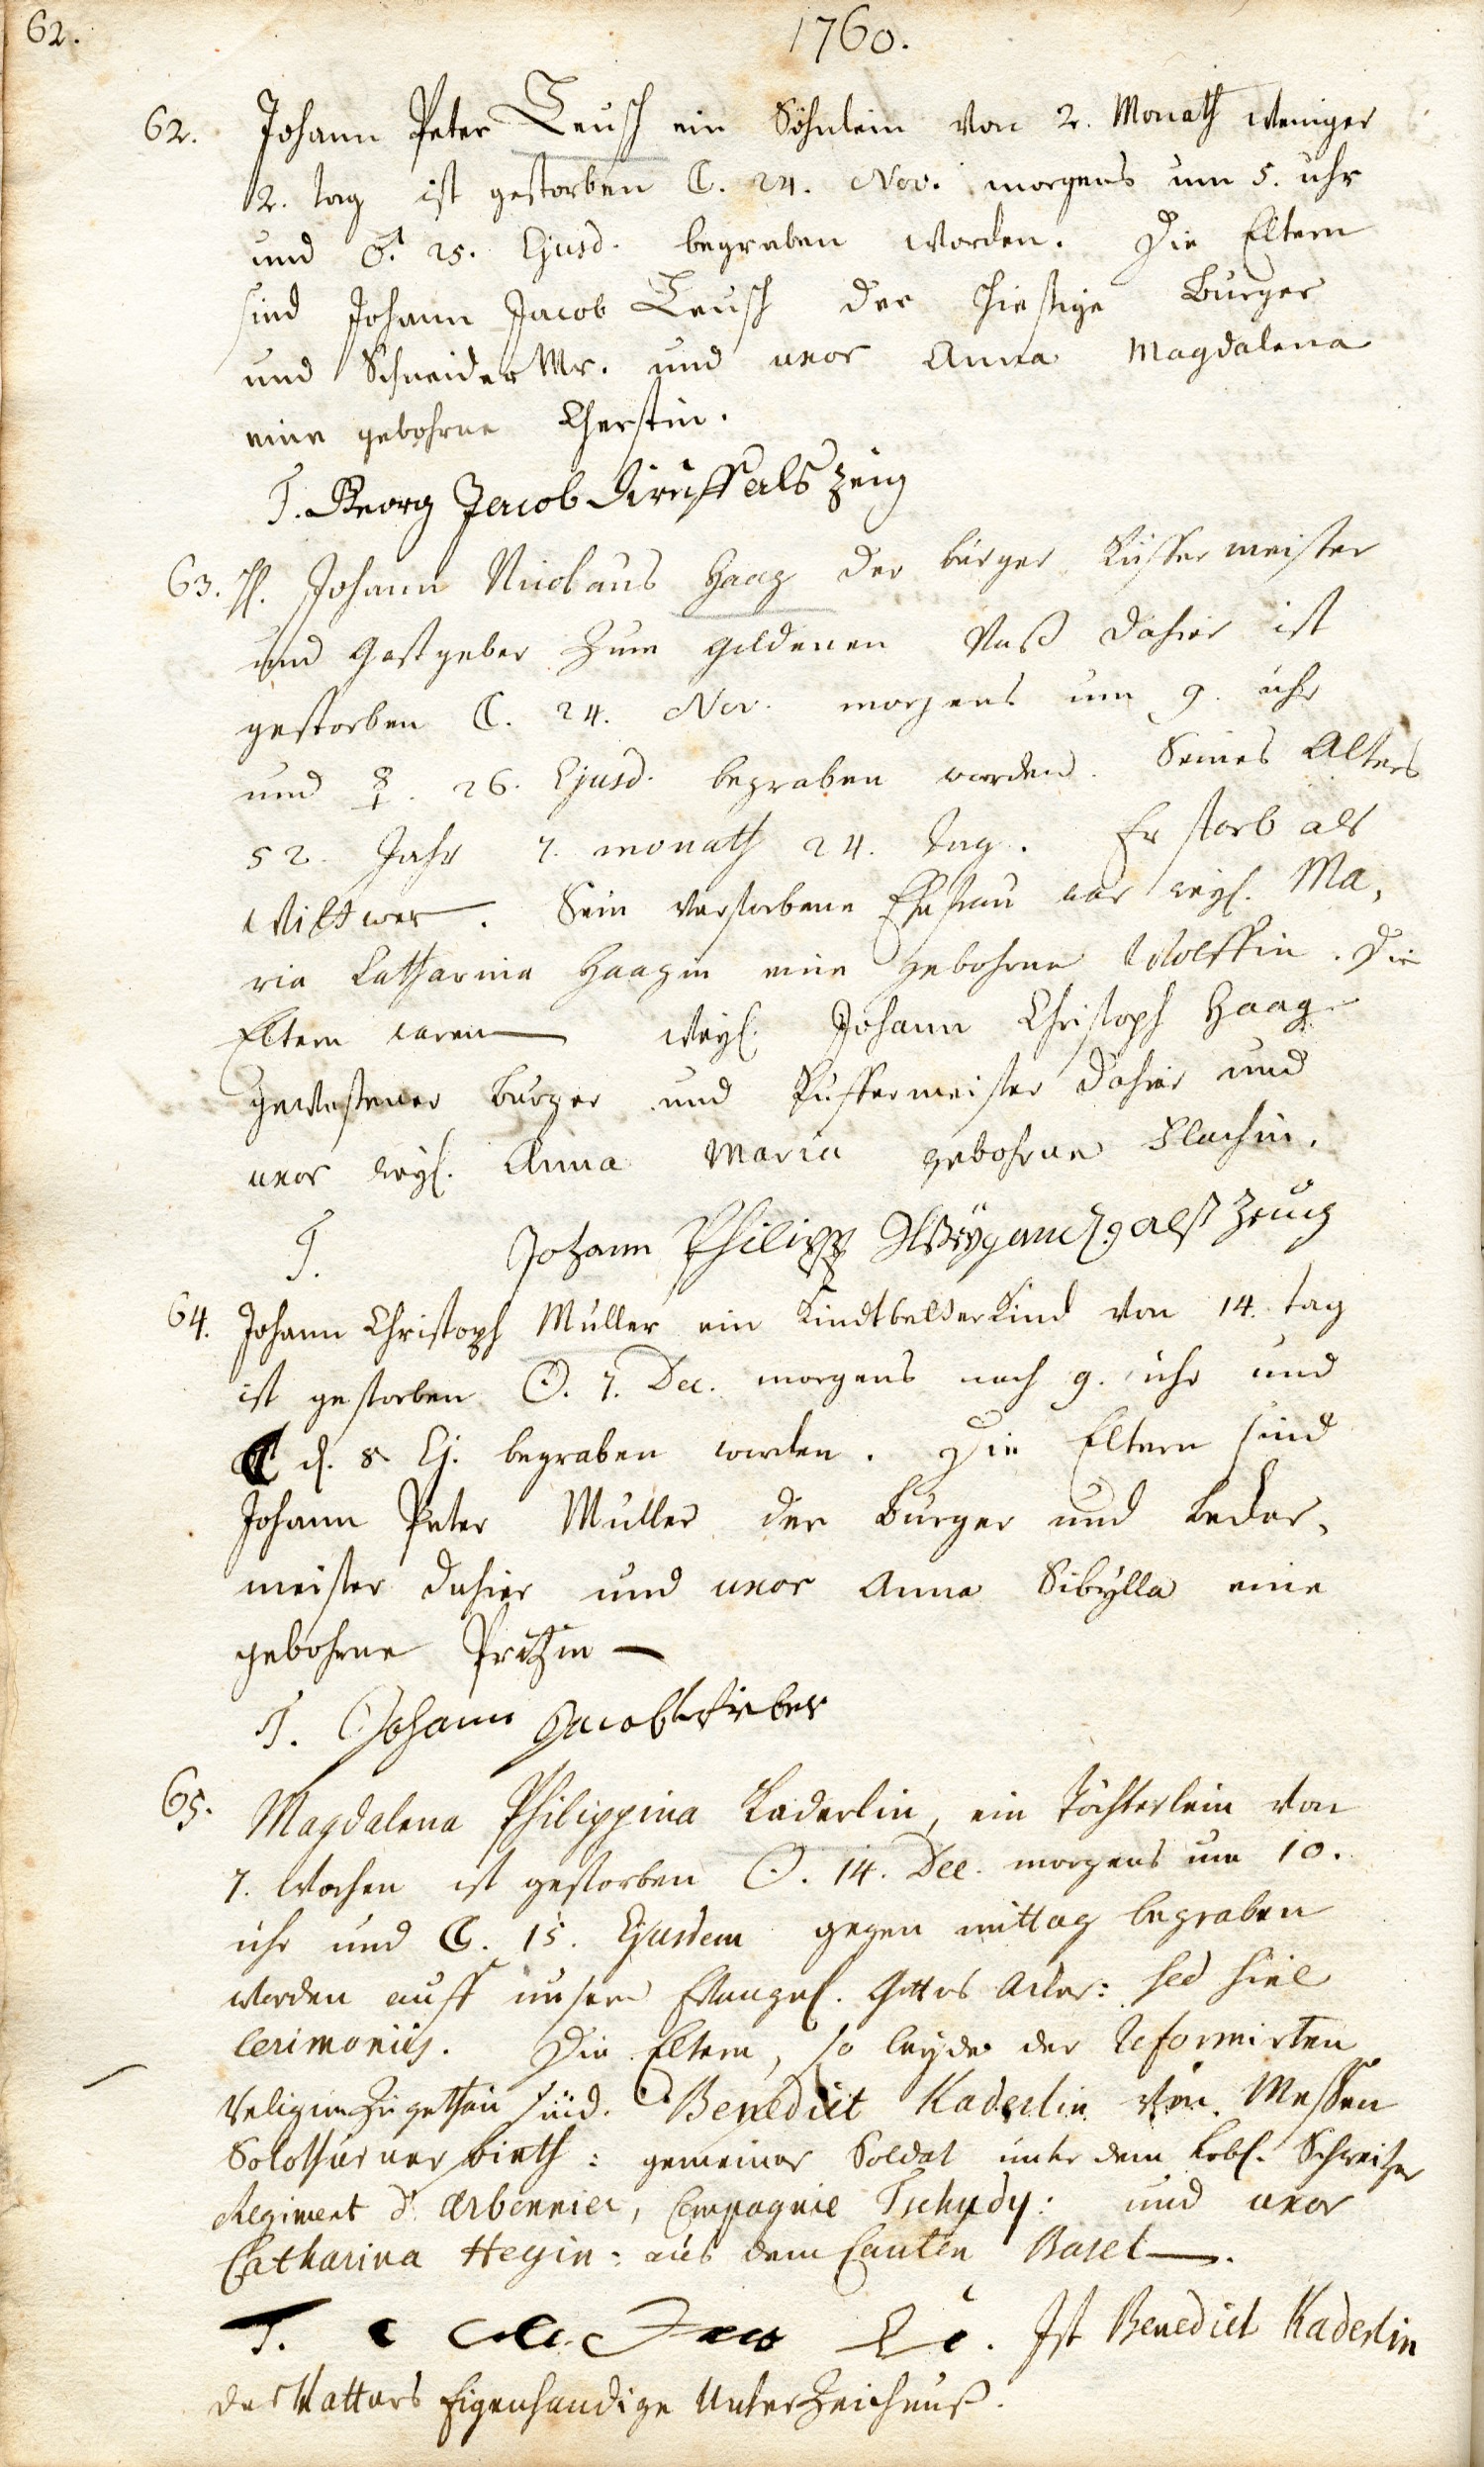 62.
1760.
62. Johann Peter Teusch ein Söhnlein von 2. Monath weniger
2. tag ist gestorben ☾. 24. Nov. morgens um 5. uhr
und ♂. 25. Ejusd. begraben worden. Die Eltern
sind Johann Jacob Teusch der hiesige Burger
und Schneider Mr. und uxor Anna Magdalena
eine gebohrne Cherstin.
T. Georg Jacob als Zeug
63. H. Johann Nicolaus Haag der burger Küffermeister
und Gastgeber zum goldenen Vaß dahier ist
gestorben ☾. 24. Nov. morgens um 9. uhr
und ☿. 26. Ejusd. begraben worden. Seines Alters
52. Jahr 7. monath 24. tag. Er starb als
Wittwer. Sein verstorbene Ehefrau war weyl. Ma,
ria Catharina Haagin eine gebohrne Wolffin. Die
Eltern waren weyl. Johann Christoph Haag
gewesener burger und Küffermeister dahier und
uxor weyl. Anna Maria gebohrne Flachin.
T. Johann Philipp Weygandt alß Zeug
64. Johann Christoph Muller ein Kindtbetterkind von 14. tag
ist gestorben ☉. 7. Dec. morgens nach 9. uhr und
☾ d. 8 Ej. begraben worden. Die Eltern sind
Johann Peter Muller der Burger und Beder,
meister dahier und uxor Anna Sibÿlla eine
gebohrne
T. Johann Jacob Weber
65. Magdalena Philippina Kaderlin, ein Töchterlein von
7. Wochen ist gestorben ☉. 14. Dec. morgens um 10.
uhr und ☾. 15. Ejusdem gegen mittag begraben
worden auff unsern Evangel. Gottes Acker: sed sine
cerimoniis. Die Eltern, so beyde der Reformirten
Religion zugethan sind. Benedict Kaderlin von Messen
Solothurner bieth: gemeiner Soldat unter dem Lobl. Schweitzer
Regiment d'Arbonnier, Compagnie Tschudy: und uxor
Catharina Hegin: aus dem Canton Basel.
T. Ist Benedict Kaderlin
des Vatters Eigenhandige Unterzeichnuß.